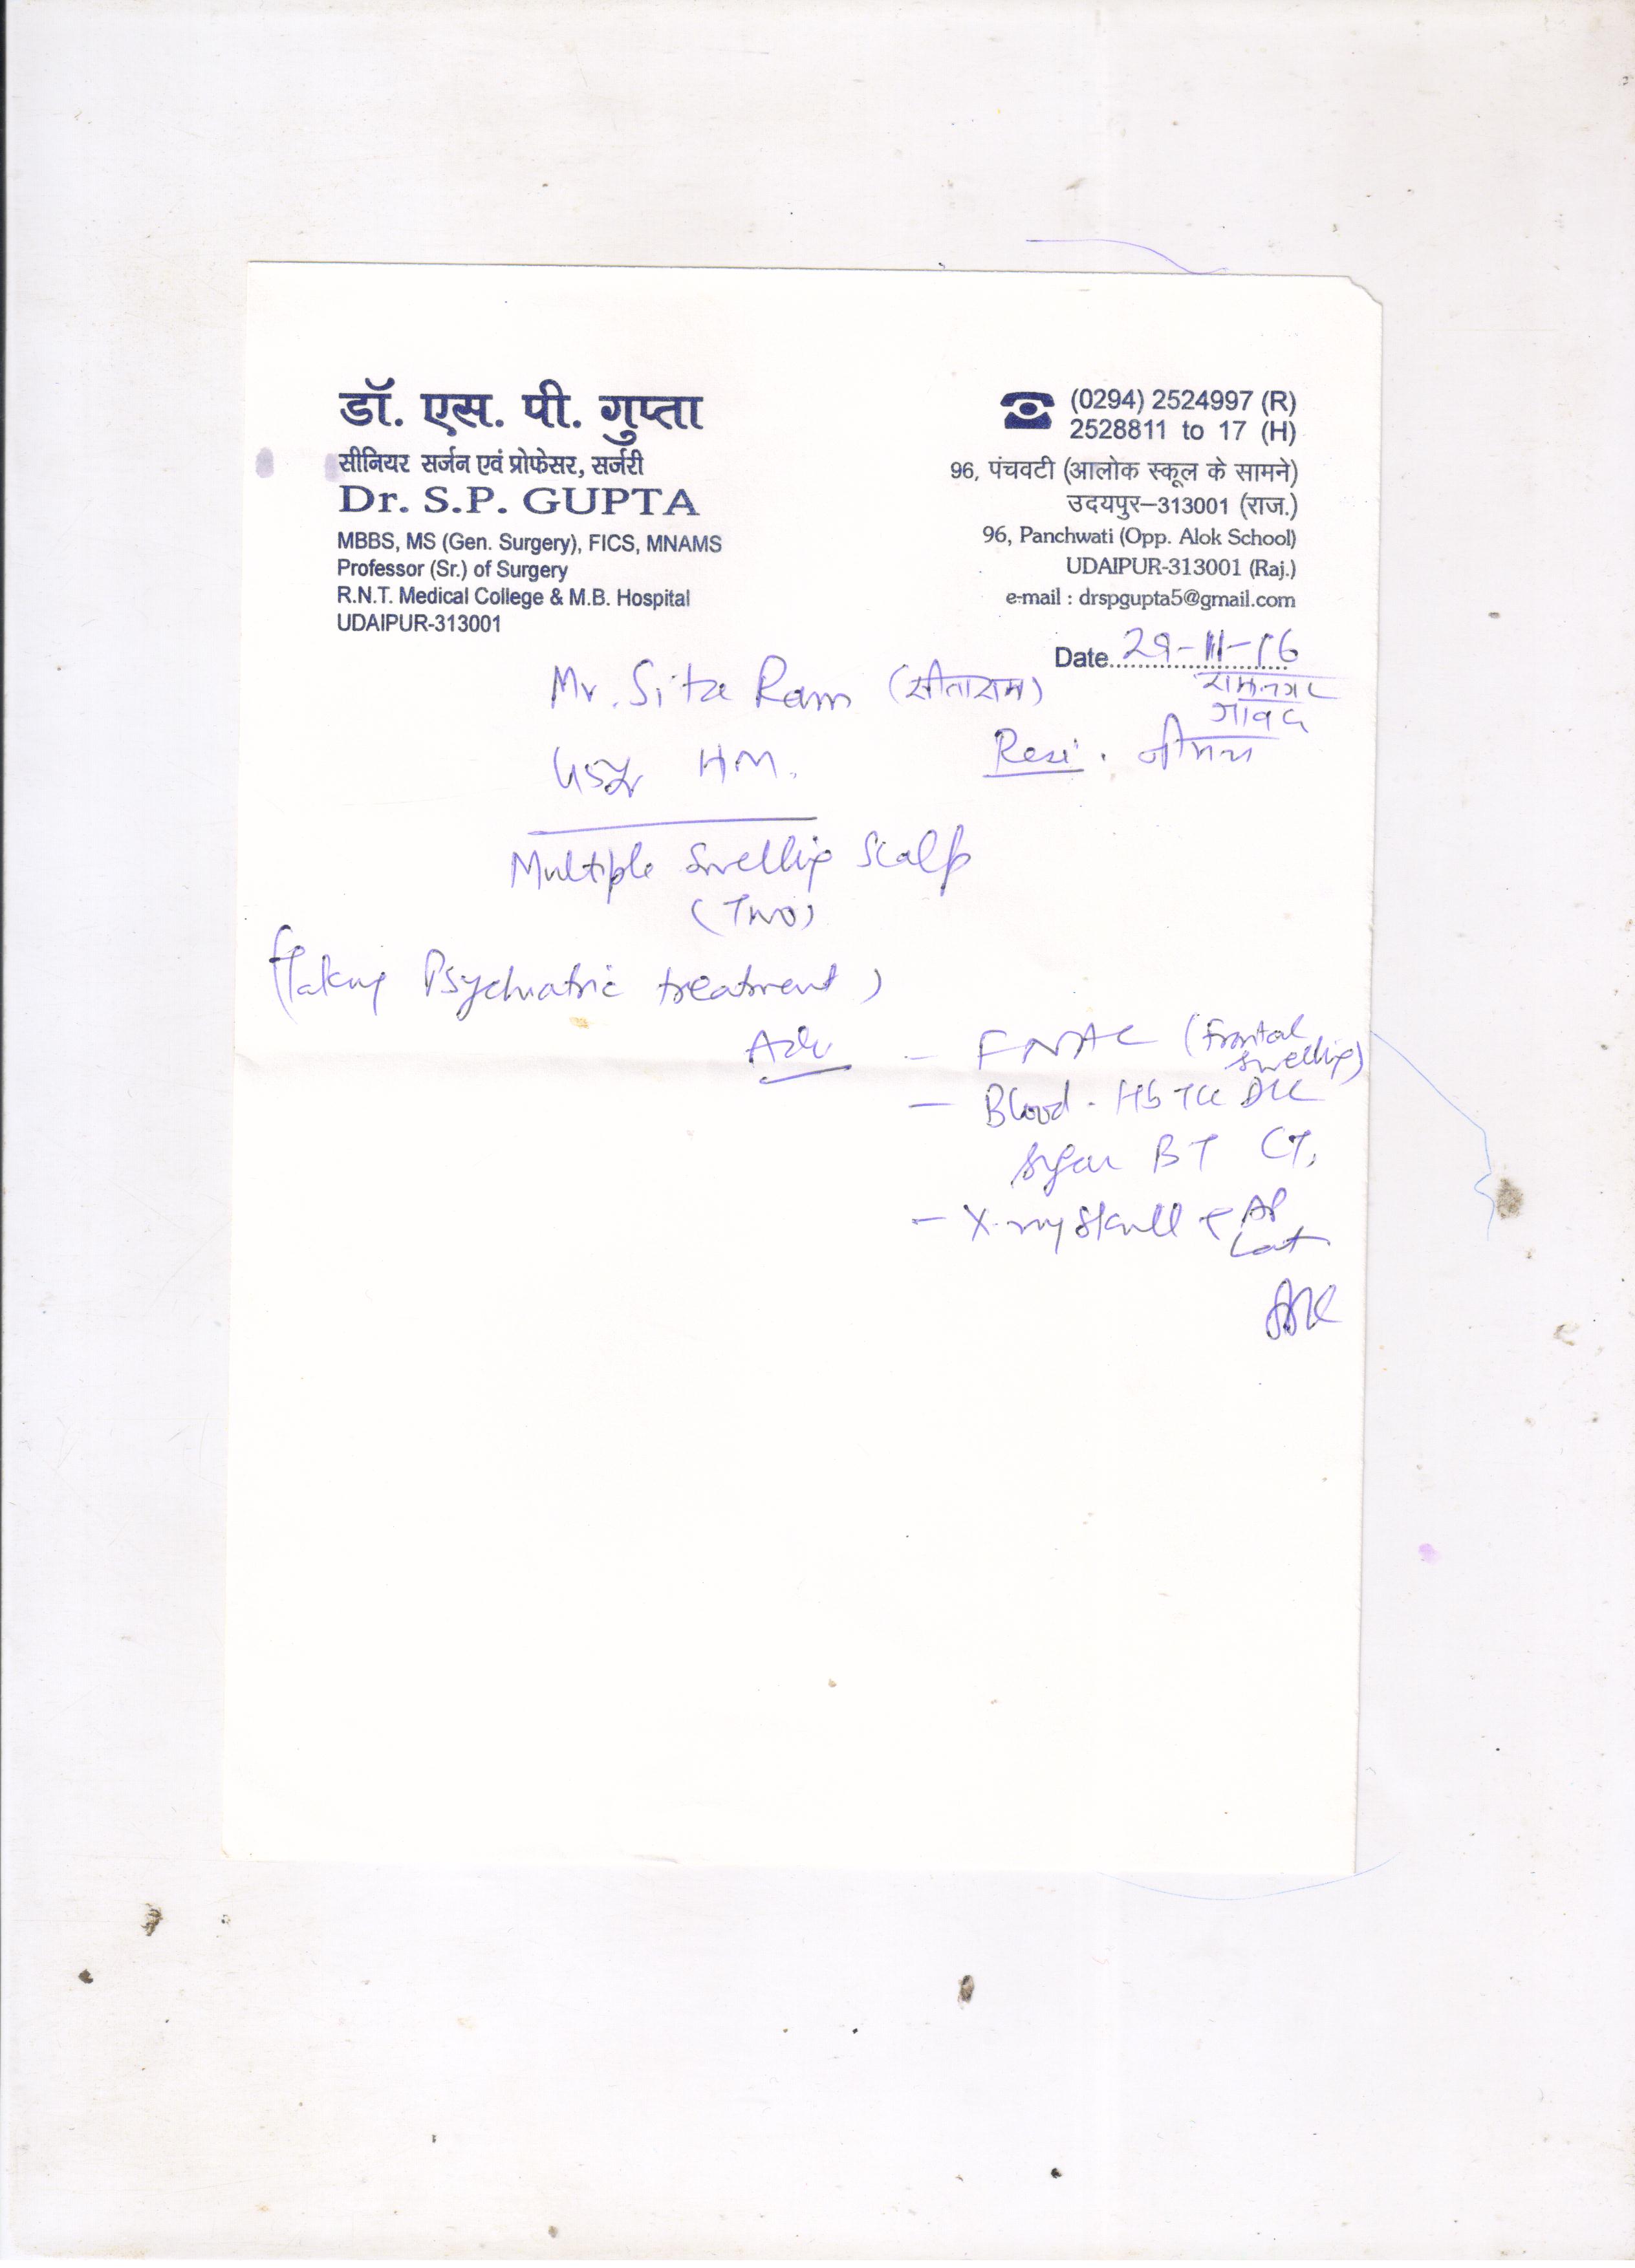 डॉ. एस. पी. गुप्ता
सीनियर सर्जन एवं प्रोफेसर, सर्जरी
Dr. S.P. GUPTA
MBBS, MS (Gen. Surgery), FICS, MNAMS
Professor (Sr.) of Surgery
R.N.T. Medical College & M.B. Hospital
UDAIPUR-313001
(0294) 2524997 (R)
2528811 to 17 (H)
96, पंचवटी (आलोक स्कूल के सामने)
उदयपुर–313001 (राज.)
96, Panchwati (Opp. Alok School)
UDAIPUR-313001 (Raj.)
e-mail : drspgupta5@gmail.com
Date 29-11-16
Mr. Sita Ram (सीताराम)
रामनगर
जावद
HM.
Resi. नीमच
Multiple Swelling Scalp
(Two)
(Taking Psychiatric treatment)
Adv - FNAC (Frontal
swelling)
- Blood - Hb TLC DLC
Sugar BT CT,
- X-ray Skull AP
Lat